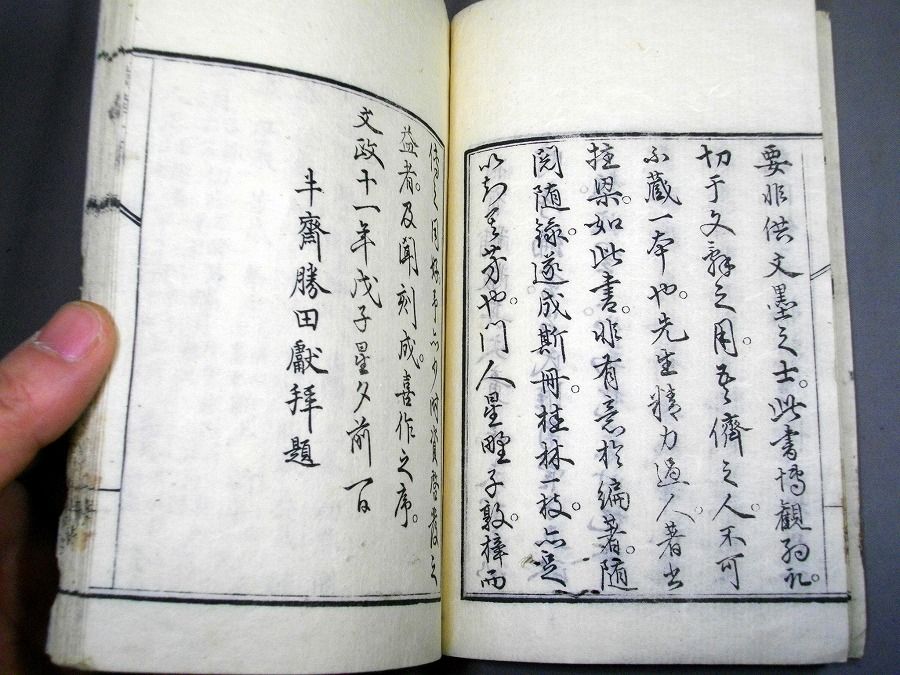 要非供文墨之士。此書博觀約記。
切于文辭之用。吾儕之人不可
不藏一本也。先生精力過人。著書
挂梁。如此書。非有意於編著。隨
閱隨錄。遂成斯冊。桂林一枝。亦足
以知其芳也。門人星野子敦梓而
之同好 資 之
益者。及聞刻成。喜作之序。
文政十一年戊子星夕前一日
半齋勝田獻拜題